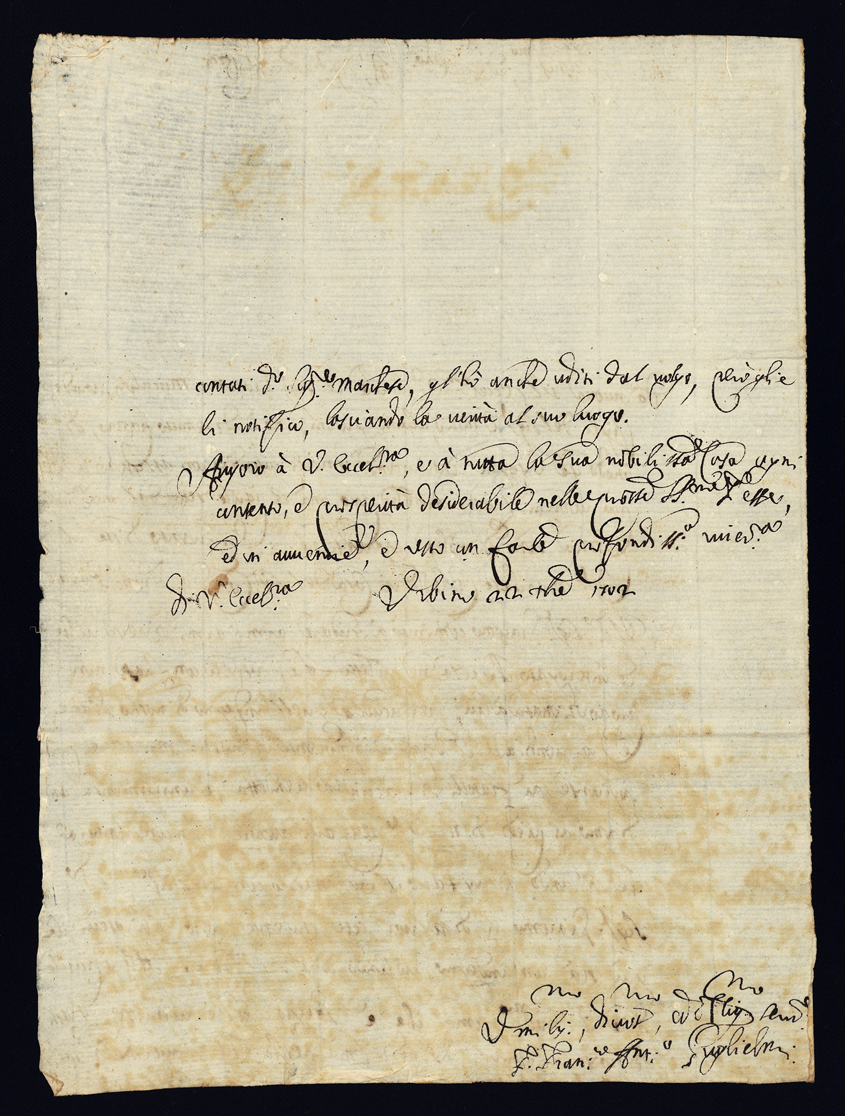 contati d.º Sig.re Marchese, gl'hò anche uditi dal volgo, e glie
li notifico, lasciando la verità al suo luogo.
Auguro à V. Eccell.za, e à tutta la sua nobiliss.a Casa ogni
contento, e prosperità desiderabile nelle S.me feste,
ed in avvenire, e resto con farle profondiss.a river.za
di V. Eccell.za Urbino 22 1702
Umilis., divot., ed oblig. serv.
F. Fran.co Ant.o Guglielmi